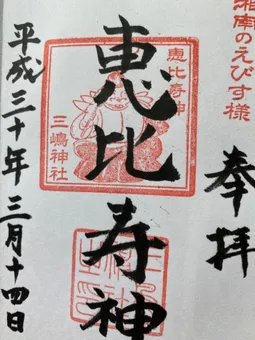 湘南のえびす様
奉拝
恵比寿神
恵比寿神
三嶋神社
平成三十年三月十四日